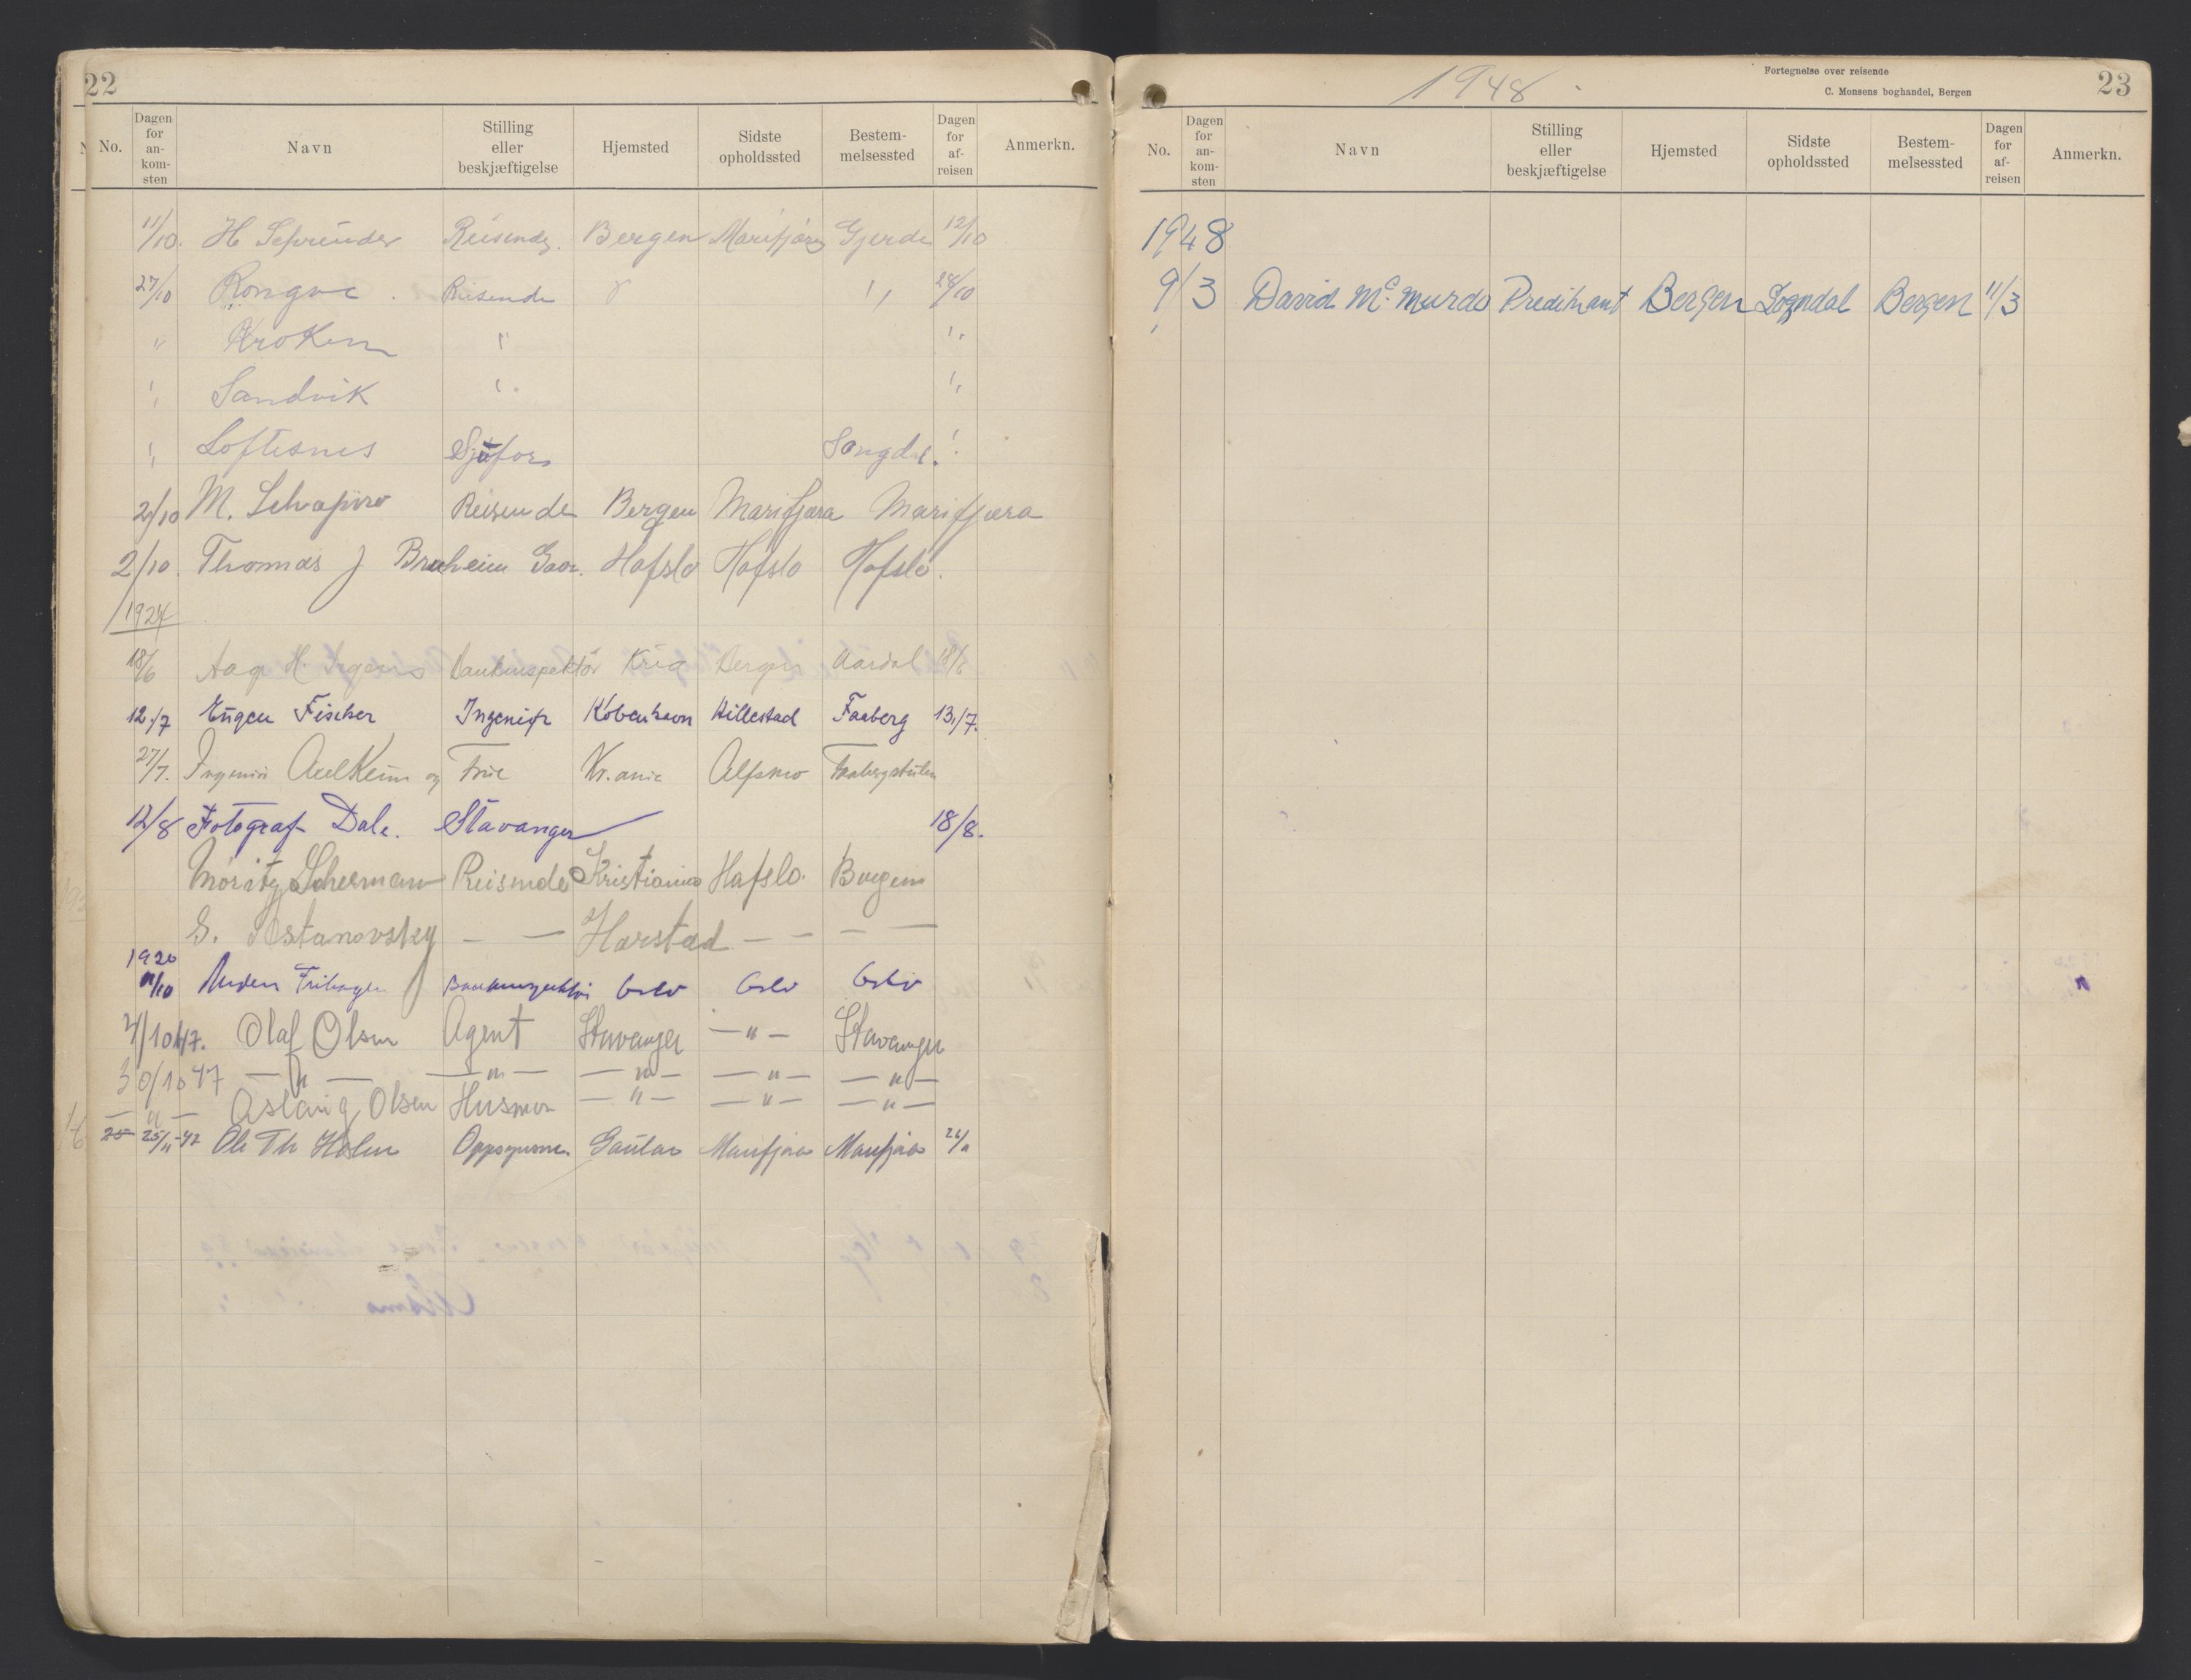 22
No. Dagen for an- kom- sten Navn Stilling eller beskjæftigelse Hjemsted Sidste opholdssted Bestem- melsessted Dagen for af- reisen Anmerkn.
11/10. H Bergen Gjerde 12/10
27/10 Reisende " 28/10
" Kroken " "
" Sandvik " "
" Loftesnes Sjåfør Songdal. "
M. Schapiro Reisende Bergen Marifjæra Marifjæra
2/10. Thomas J Bruheim Hafslo Hafslo Hafslo.
1924
18/6 Aage H. Bankinspektör Kria Bergen Aardal 18/6
12./7 Eugen Fischer Ingeniør København Hillestad Faaberg 13./7.
27/7. Ingeniør og Frue Kr.ania
12/8 Fotograf Dale. Stavanger 18/8.
Moritz Scherman Reisende Kristiania Hafslo. Bergen
S. — — Harstad — — — —
1920
11/10 Oslo Oslo Oslo
4/10 47. Olaf Olsen Agent Stavanger —"— Stavanger
30/10 47 — " — — " — — " — — " — — " —
— " — Aslaug Olsen Husmor — " — — " — — " —
25 25/11-47 Ole Th Holm Gaular Marifjøra Marifjøra
1948
Fortegnelse over reisende
C. Monsens boghandel, Bergen
23
No. Dagen for an- kom- sten Navn Stilling eller beskjæftigelse Hjemsted Sidste opholdssted Bestem- melsessted Dagen for af- reisen Anmerkn.
1948
9/3 David Mc. Murdo Predikant Bergen Sogndal Bergen 11/3